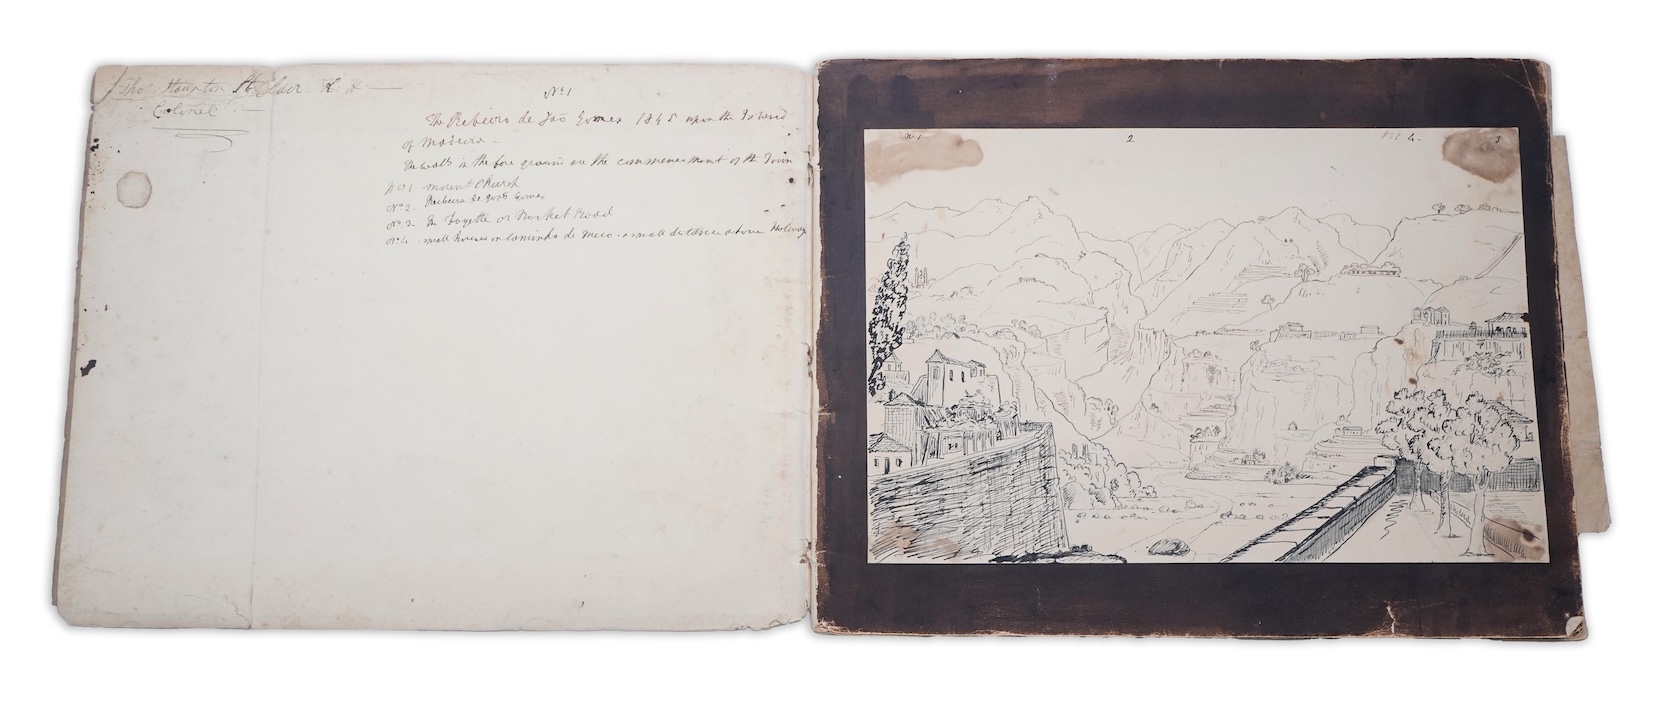 Tho.s Haupton St Clair K. H.
Colonel
No. 1
The Ribeiro de Joo Gomes 1845 upon the Island
of Madeira.
The walls in the fore ground are the commencement of the Town
No 1. Mount Church
No 2. Ribeiro de Joo Gomes
No. 3. The or Market Road
No 4. small houses on Caminha de Meio a small distance above
No 1
2
4
3